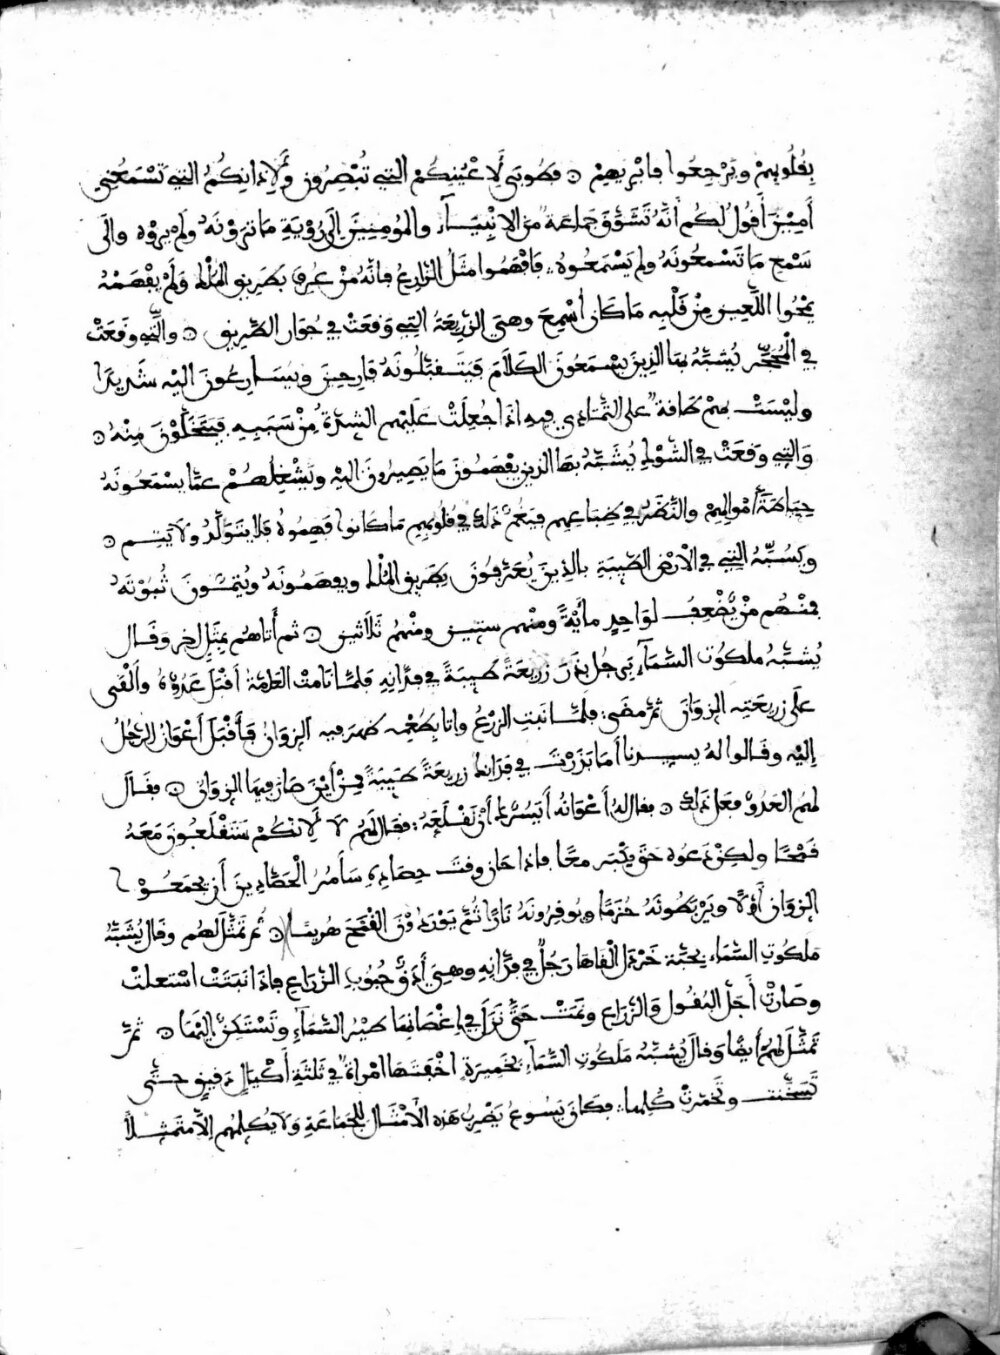 بقلوبهم ويرجعوا فابريهم ۞ فطوبى لاعينكم التي تبصرون ولاذانكم التي تسمعني
امين أقول لكم أنه تشوق جماعة من الانبياء والمومنين الى روية ما ترونه ولم يروه والى
سمع ما تسمعونه ولم يسمعوه ؞ فافهموا مثل الزارع فانه من عرف بطريق الملك ولم يفهمه
يمحوا اللعين من قلبه ما كان اسمع وهي الزريعة التي وقعت في جوار الطريق ۞ والتي وقعت
في المحجر يشبه بها الذين يسمعون الكلام فيتقبلونه فارحين ويسارعون اليه شديدا
وليست بهم طاقة على التمادي فيه اذا جعلت عليهم الشدة من سببه فيتخلون منه ۞
والتي وقعت في الشوك يشبه بها الذين يفهمون ما يصيرون اليه ويشغلهم عما يسمعونه
حياطة أموالهم والنظر في ضياعهم فيغم ذلك في قلوبهم ما كانوا فهموه فلا يتولد ولا يتم ۞
ويشبه التي في الارض الطيبة بالذين يعترفون بطريق الملك ويفهمونه ويتمسون ثبوته
فمنهم من يضعف لواحد مأية ومنهم ستين ومنهم ثلاثين ۞ ثم أتاهم بمثل اخر وقال
يشبه ملكوت السماء برجل بذر زريعة طيبة في فدانه فلما نامت العامة أقبل عدوه وألقى
على زريعته الزوان ثم مضى ؛ فلما نبت الزرع واتا بطعمه ظهر فيه الزوان فأقبل أعوان الرجل
اليه وقالوا له يسيدنا أما بذرت في فدانك زريعة طيبة فمن أين صار فيها الزوان ۞ فقال
لهم العدو فعل ذلك ۞ فقال له أعوانه أيسرك أن نقلعه ؛ فقال لهم لا لانكم ستقلعون معه
قمحا ولكن دعوه حتى يكبر معا فاذا حان وقت حصاده سأمر الحصادين أن يجمعوا
الزوان أولا ويربطونه حزما ويوفرونه نارا ثم يوردون القمح هريسا ۞ ثم تمثل لهم وقال يشبه
ملكوت السماء بحبة خردل ألقاها رجل في فدانه وهي أدق حبوب الزرارع فاذا نبتت استعلت
وصارت أجل البقول والزرارع ونمت حتى نزل في اغصانها طير السماء وتستكن اليها ۞ ثم
تمثل لهم أيضا وقال يشبه ملكوت السماء بخميرة اخفتها امرأة في ثلثة أكيال دقيق حتى
تسخنت وتخمرت كلها ؛ فكان يسوع يضرب هذه الامثال للجماعة ولا يكلمهم الا متمثلا